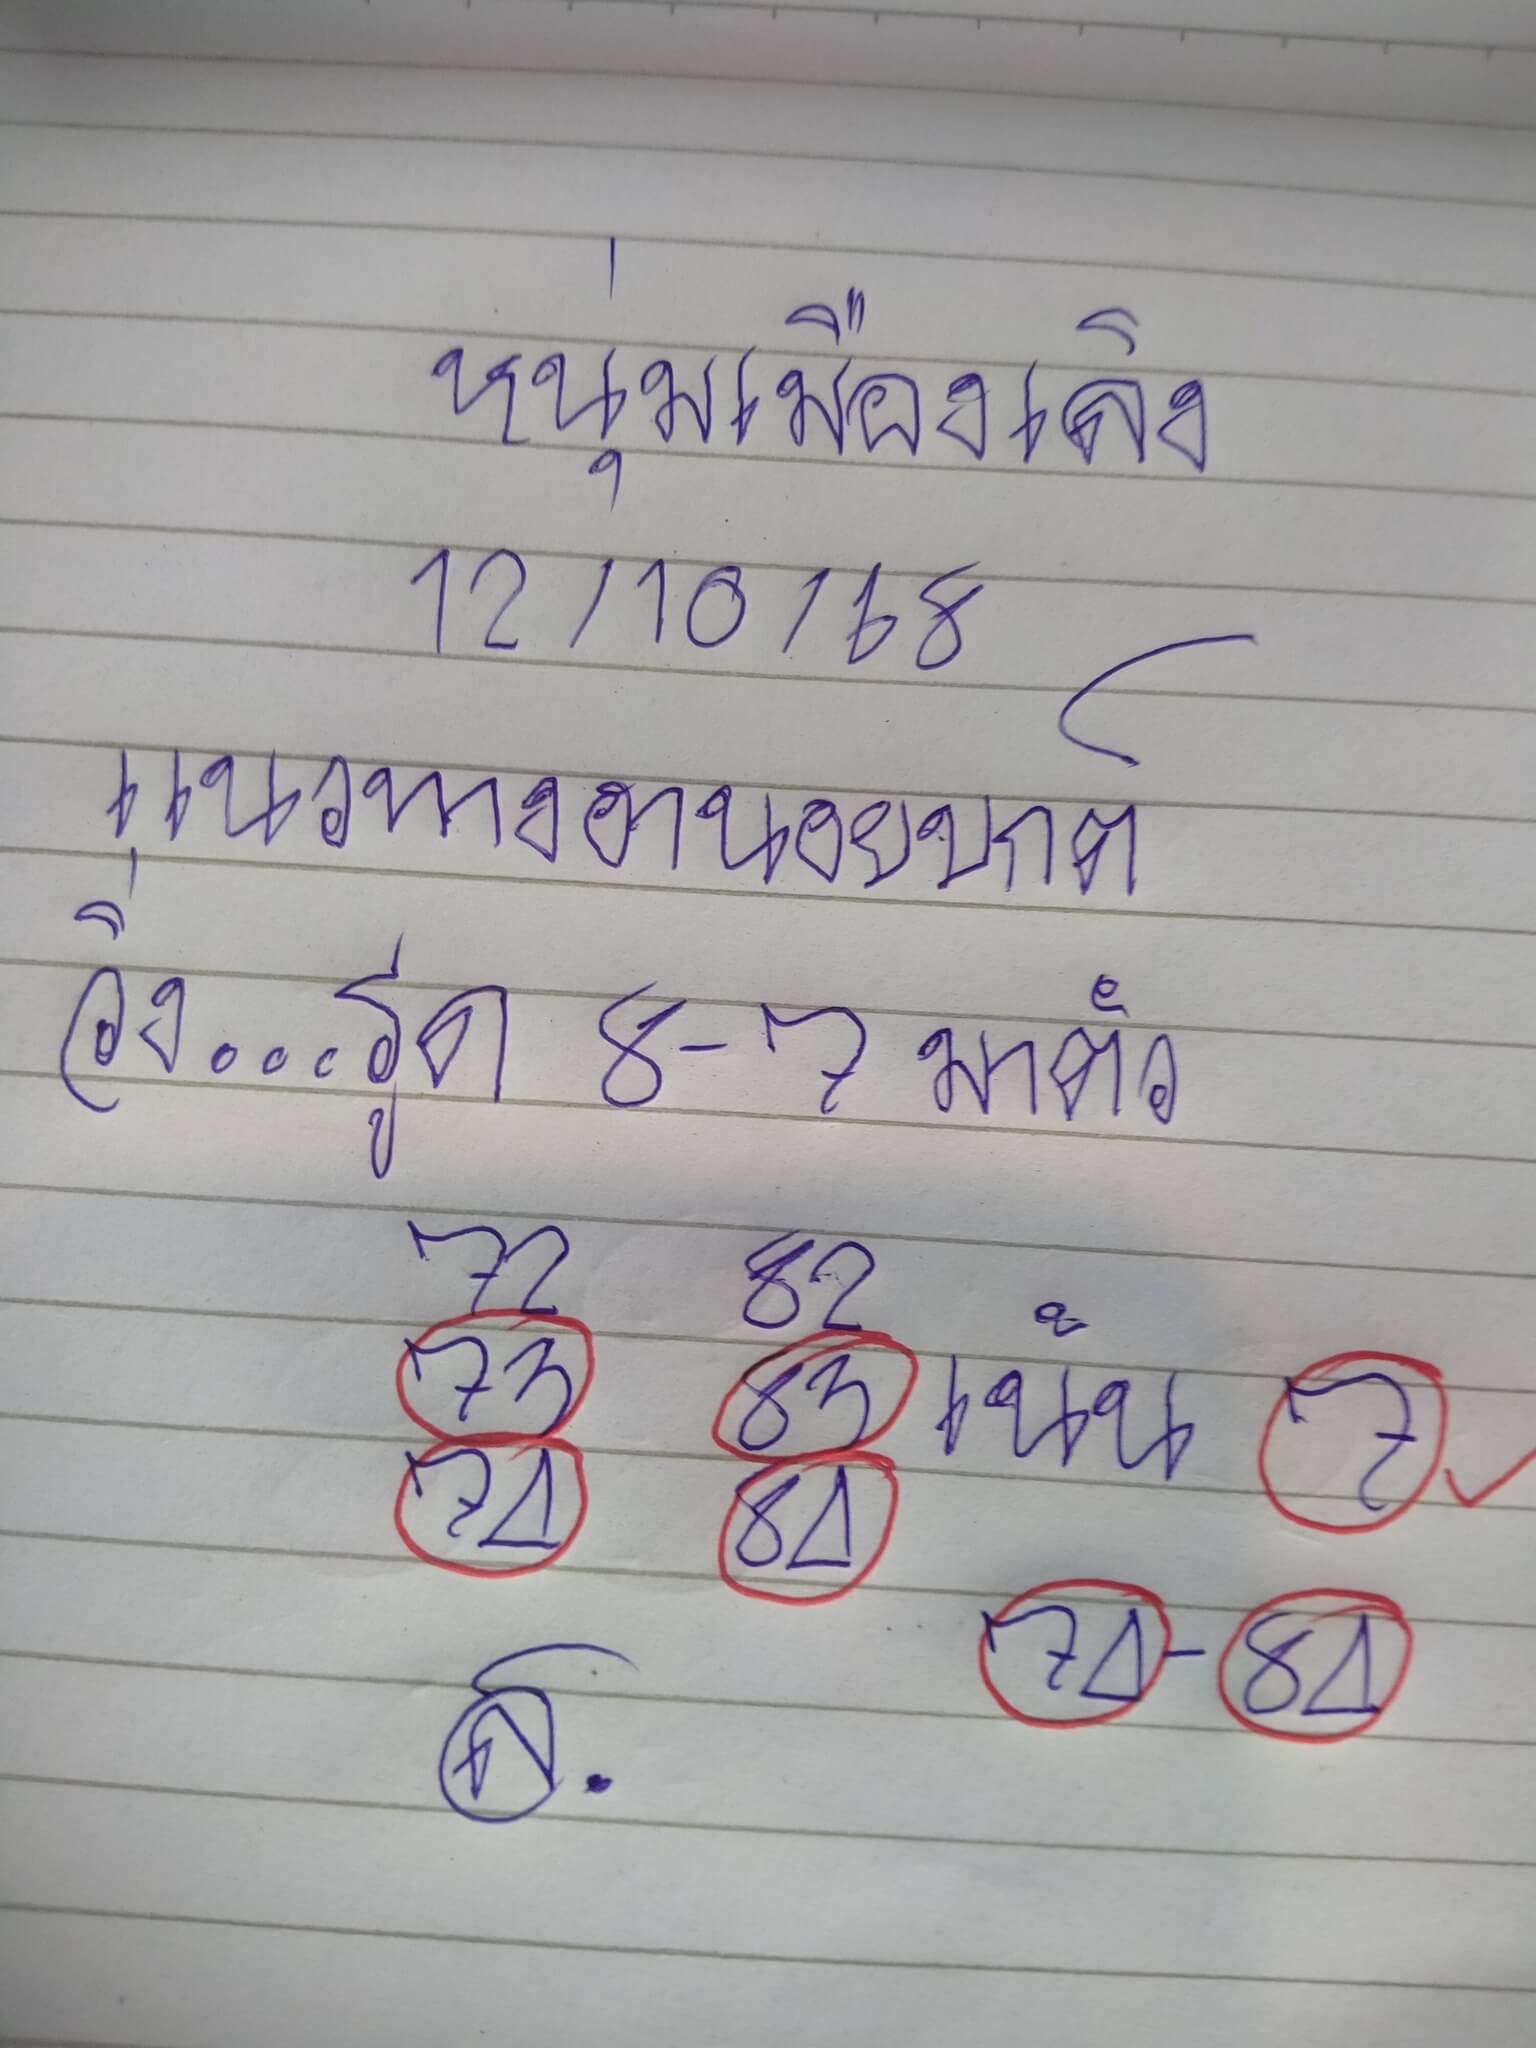 หนุ่มเมืองเลิง
12/10/68
แนวทางฮานอยปกติ
วิ่ง...รูด 8-7 มาตัว
72 82
73 83 เน้น 7
74 84
74-84